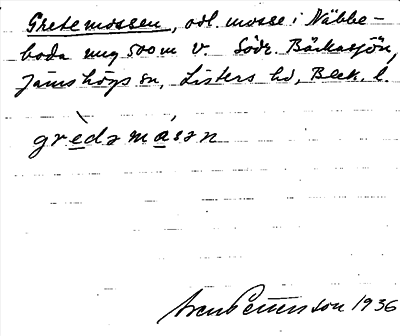 Gretemossen, odl. mosse i Näbbe-
boda umg 500 m v. Södr. Bäckasjön,
Jämshögs sn, Listers hd, Blek. l.
grèdəmåsən
Sven Petersson 1936